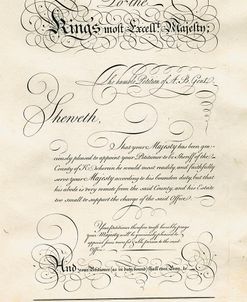 To the
King's most Excell.t Majesty;
The humble Petition of A.B. Gent.
Sheweth,
That your Majesty has been gra-
ciously pleased to appoint your Petitioner to be Sheriff of the
County of K. wherein he would most readily, and faithfully
serve your Majesty according to his bounden duty, but that
his abode is very remote from the said County, and his Estate
too small to support the charge of the said Office.
Your Petitioner therefore most humbly prays
your Majesty will be graciously pleased to
appoint some fit person to the said
Office.
And your Petitioner (as in duty bound) shall ever Pray, &c.